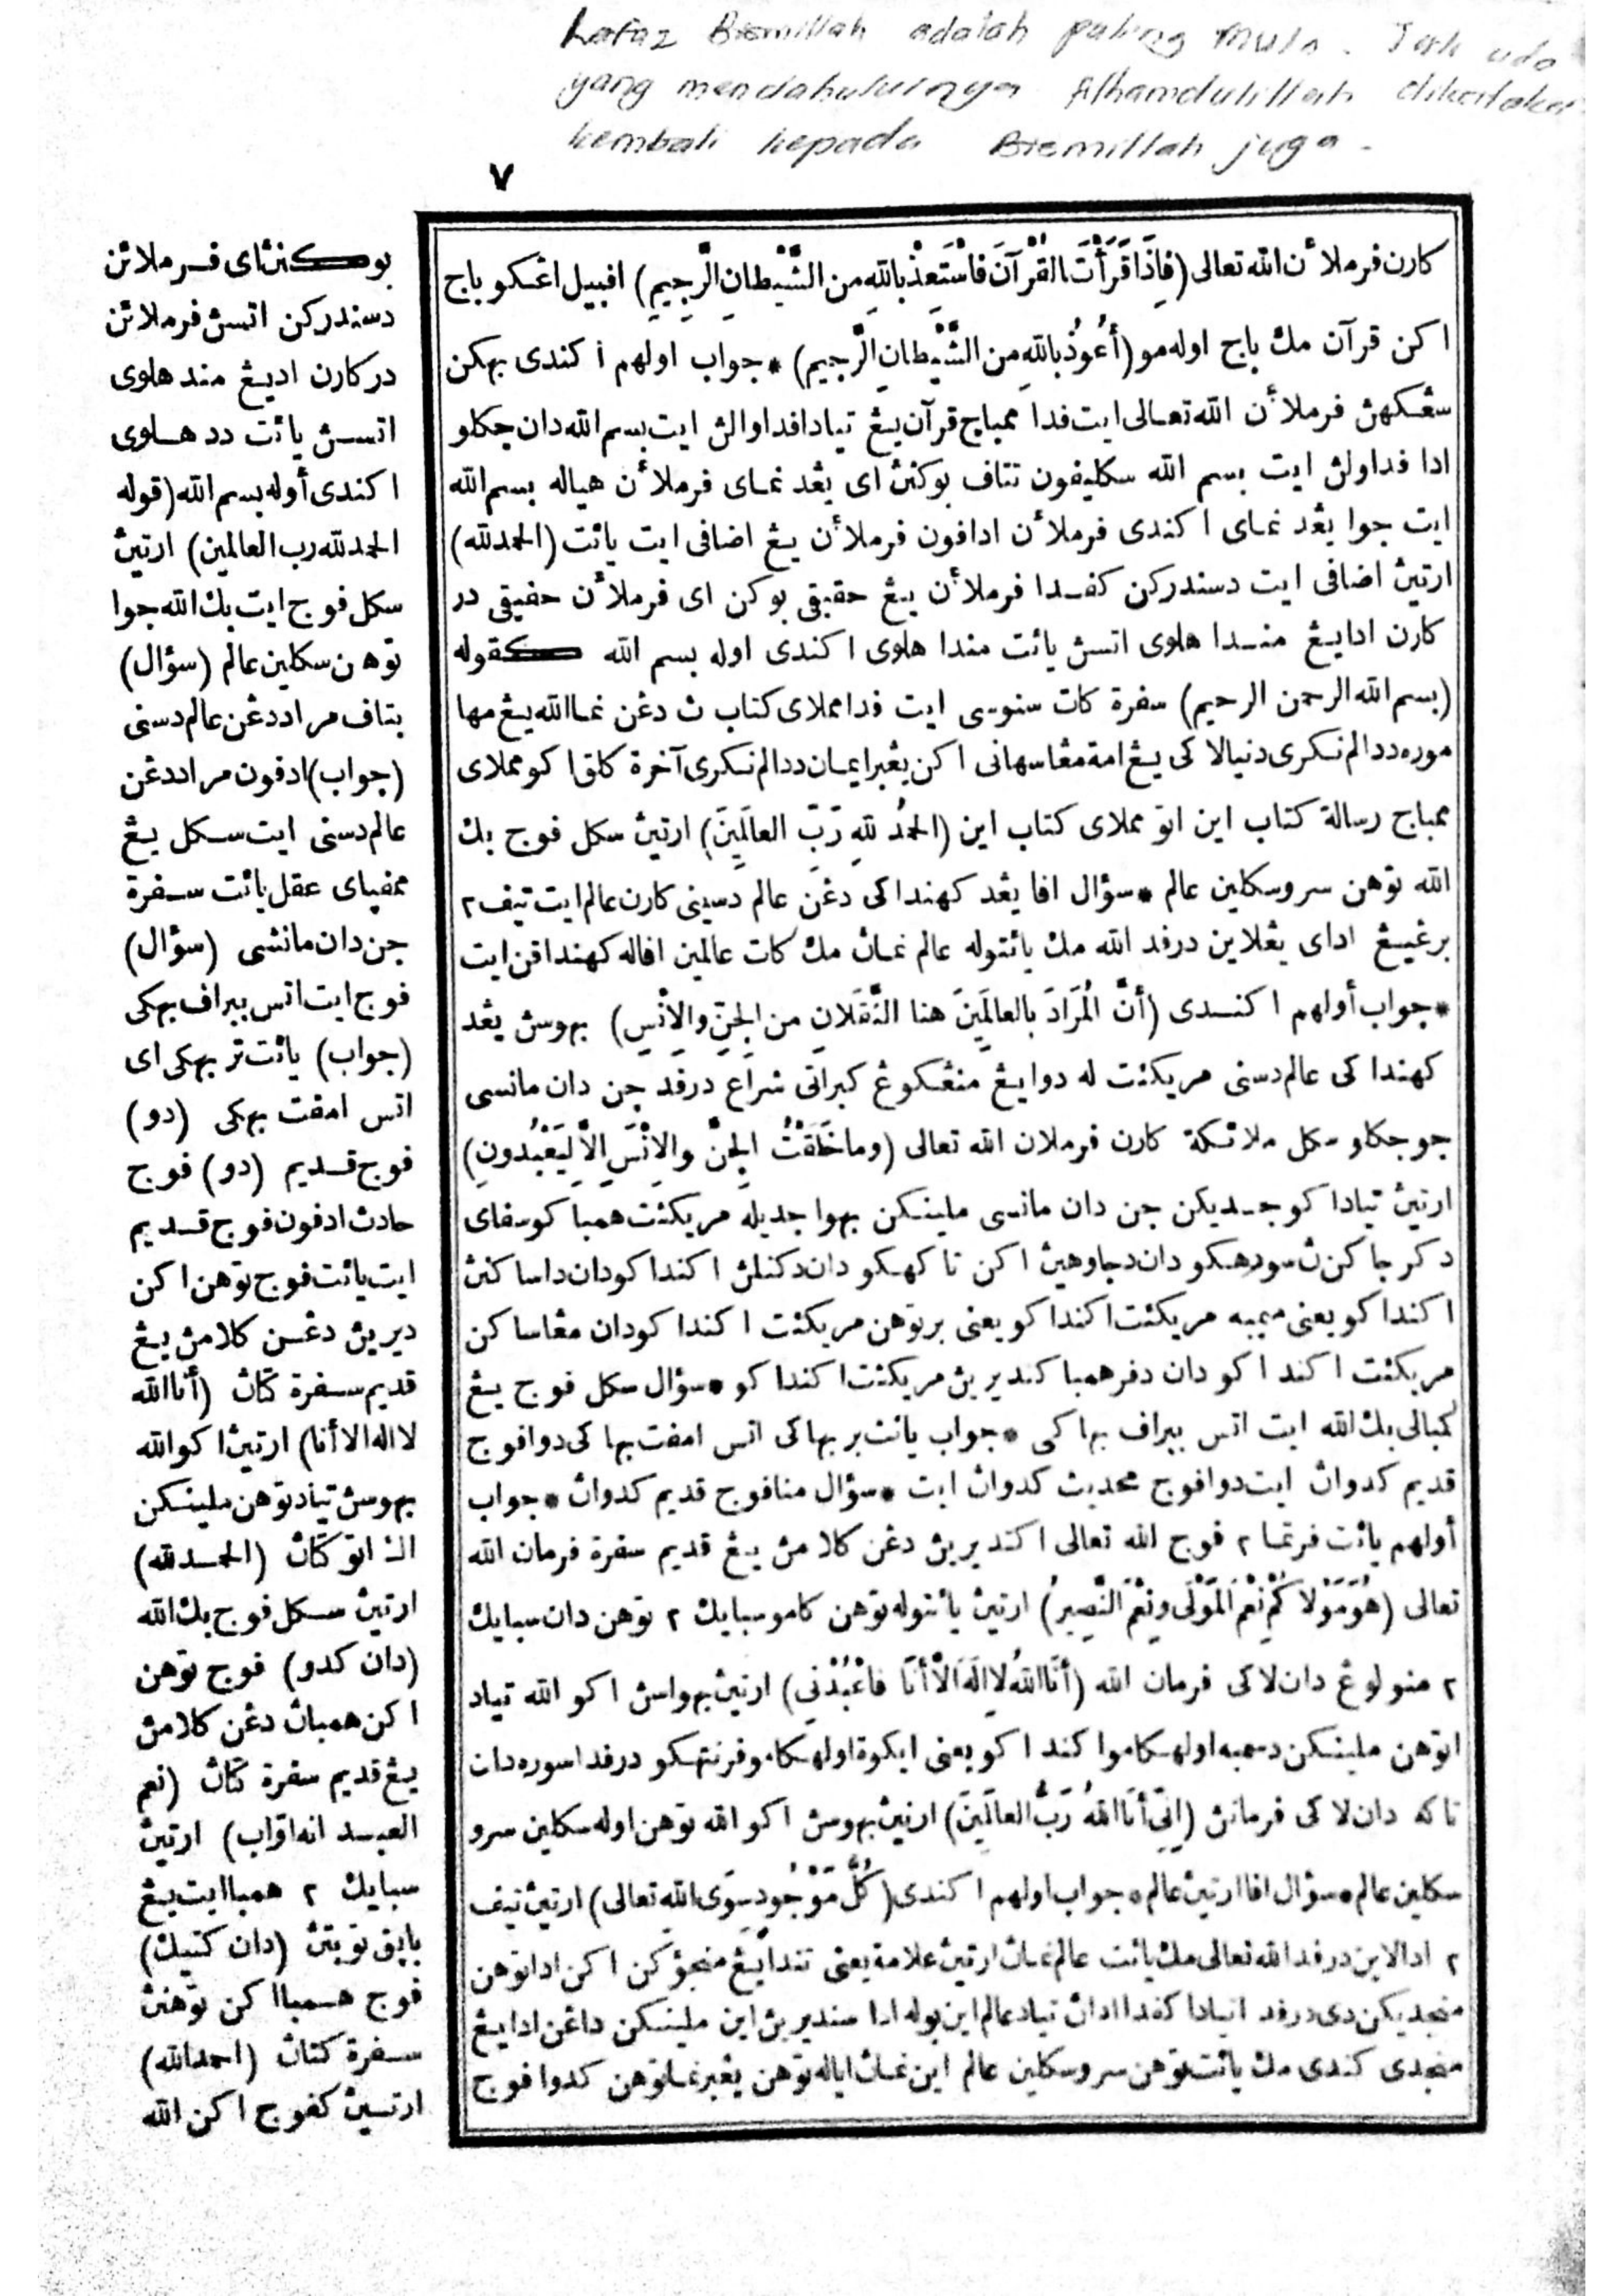 Lafaz Bismillah adalah paling mula. Tak ada
yang mendahuluinya Alhamdulillah dikatakan
kembali kepada Bismillah juga.
٧
كارن فرملاٴن الله تعالى (فَإِذَا قَرَأْتَ القُرْآنَ فَاسْتَعِذْ بِاللهِ مِن الشَّيْطانِ الرَّجِيمِ) افبيل اڠكو باج
اكن قرآن مك باج اوله مو (أَعُوذُ بِاللهِ مِن الشَّيْطانِ الرَّجِيمِ) * جواب اولهم اكندى بهكن
سڠكهڽ فرملاٴن الله تعالى ايت فدا ممباج قرآن يڠ تيادا فدا اولڽ ايت بسم الله دان جكلو
ادا فد اولڽ ايت بسم الله سكليفون تتاف بوكنڽ اى يڠد نماى فرملاٴن هياله بسم الله
ايت جوا يڠد نماى اكندى فرملاٴن ادافون فرملاٴن يڠ اضافى ايت يائت (الحمد لله)
ارتيڽ اضافى ايت دسندركن كفدا فرملاٴن يڠ حقيقى بوكن اى فرملاٴن حقيقى در
كارن اد ايڠ مندا هلوى اتسڽ يائت مندا هلوى اكندى اوله بسم الله كقوله
(بسم الله الرحمن الرحيم) سفرة كات سنوسى ايت فدا مملاى كتاب ڽ دڠن نما الله يڠ مها
موره ددالم نكرى دنيا لاكى يڠ امة مڠاسهانى اكن يڠبر ايمان ددالم نكرى آخرة كلق اكو مملاى
ممباج رسالة كتاب اين اتو مملاى كتاب اين (الحمدُ للهِ رَبِّ العالَمِينَ) ارتيڽ سكل فوج بك
الله توهن سرو سكلين عالم * سؤال افا يڠد كهنداكى دڠن عالم دسينى كارن عالم ايت تيف ٢
برڠيڠ اداى يڠلاين درفد الله مك يائتوله عالم نماڽ مك كات عالمين افاله كهنداقن ايت
* جواب أولهم اكندى (أنَّ المُرَادَ بالعالَمِينَ هنا الثَّقَلانِ من الجِنِّ والإنْسِ) بهوسڽ يڠد
كهنداكى عالم دسنى مريكئت له دوا يڠ منڠكوڠ كبراتى شراع درفد جن دان مانسى
جو جكلو سكل ملائكة كارن فرملان الله تعالى (وما خَلَقْتُ الجِنَّ والإنْسَ إلاَّ لِيَعْبُدونِ)
ارتيڽ تيادا كو جديكن جن دان مانسى ملينكن بهوا جديله مريكئت همبا كو سفاى
اكندا كو يعنى ميمبه مريكئت اكندا كو يعنى برتوهن مريكئت اكندا كو دان مڠاسا كن
مريكئت اكندا كو دان دفر همبا كنديرين مريكئت اكندا كو * سؤال سكل فوج يڠ
كمبالى بك الله ايت اتس بيراف بهاكى * جواب يائت بربهاكى اتس امفت بهاكى دوا فوج
قديم كدواڽ ايت دوا فوج محديث كدواڽ ايت * سؤال منا فوج قديم كدواڽ * جواب
أولهم يائت فرتما ٢ فوج الله تعالى اكنديرين دڠن كلامڽ يڠ قديم سفرة فرمان الله
تعالى (هُوَ مَوْلاكُمْ نِعْمَ المَوْلَى ونِعْمَ النَّصِيرُ) ارتيڽ يائتوله توهن كامو سبايك ٢ توهن دان سبايك
٢ منولوڠ دان لاكى فرمان الله (أنَا اللهُ لا إلَهَ إلاَّ أنَا فاعْبُدْنِي) ارتيڽ بهواسڽ اكو الله تياد
اتوهن ملينكن دسمبه اولهكامو اكندا كو يعنى ايكوة اولهكامو فرنتهكو درفدا سوره دان
تاكه دان لاكى فرمانڽ (إنِّي أنَا اللهُ رَبُّ العالَمِينَ) ارتيڽ بهوسڽ اكو الله توهن اوله سكلين سرو
سكلين عالم * سؤال افا ارتيڽ عالم * جواب اولهم اكندى (كُلُّ مَوْجُودٍ سِوَى اللهِ تعالى) ارتيڽ تيف
٢ ادا لاين درفد الله تعالى مك يائت عالم نماڽ ارتيڽ علامة يعنى تندا يڠ منجؤكن اكن ادا توهن
منجديكن دى درفد تيادا كفدا اداڽ تياد عالم اين بوله ادا سنديرين اين ملينكن داڠن ادا يڠ
منجدى كندى مك يائت توهن سرو سكلين عالم اين نماڽ اياله توهن يڠبرنما توهن كدوا فوج
بوكنڽ اى فرملائن
دسندركن اتسڽ فرملائن
دركارن اديڠ مند هلوى
اتسڽ يائت دد هلوى
اكندى أوله بسم الله (قوله
الحمد لله رب العالمين) ارتيڽ
سكل فوج ايت بك الله جوا
توهن سكلين عالم (سؤال)
بتاف مراد دڠن عالم دسنى
(جواب) ادفون مراد دڠن
عالم دسنى ايت سكل يڠ
ممفپاى عقل يائت سفرة
جن دان مانشى (سؤال)
فوج ايت اتس بيراف بهكى
(جواب) يائت تربهكى اى
اتس امفت بهكى (دو)
فوج قديم (دو) فوج
حادث ادفون فوج قديم
ايت يائت فوج توهن اكن
ديرين دڠن كلامڽ يڠ
قديم سفرة كتاڽ (أنا الله
لا اله الا أنا) ارتيڽ اكو الله
بهوسڽ تياد توهن ملينكن
اكو اتو كتاڽ (الحمد لله)
ارتيڽ سكل فوج بك الله
(دان كدو) فوج توهن
اكن همباڽ دڠن كلامڽ
يڠ قديم سفرة كتاڽ (نعم
العبد انه اوّاب) ارتيڽ
سبايك ٢ همبا ايت يڠ
بايق توبتڽ (دان كتيك)
فوج همبا اكن توهنڽ
سفرة كتاڽ (احمد الله)
ارتيڽ كفوج اكن الله